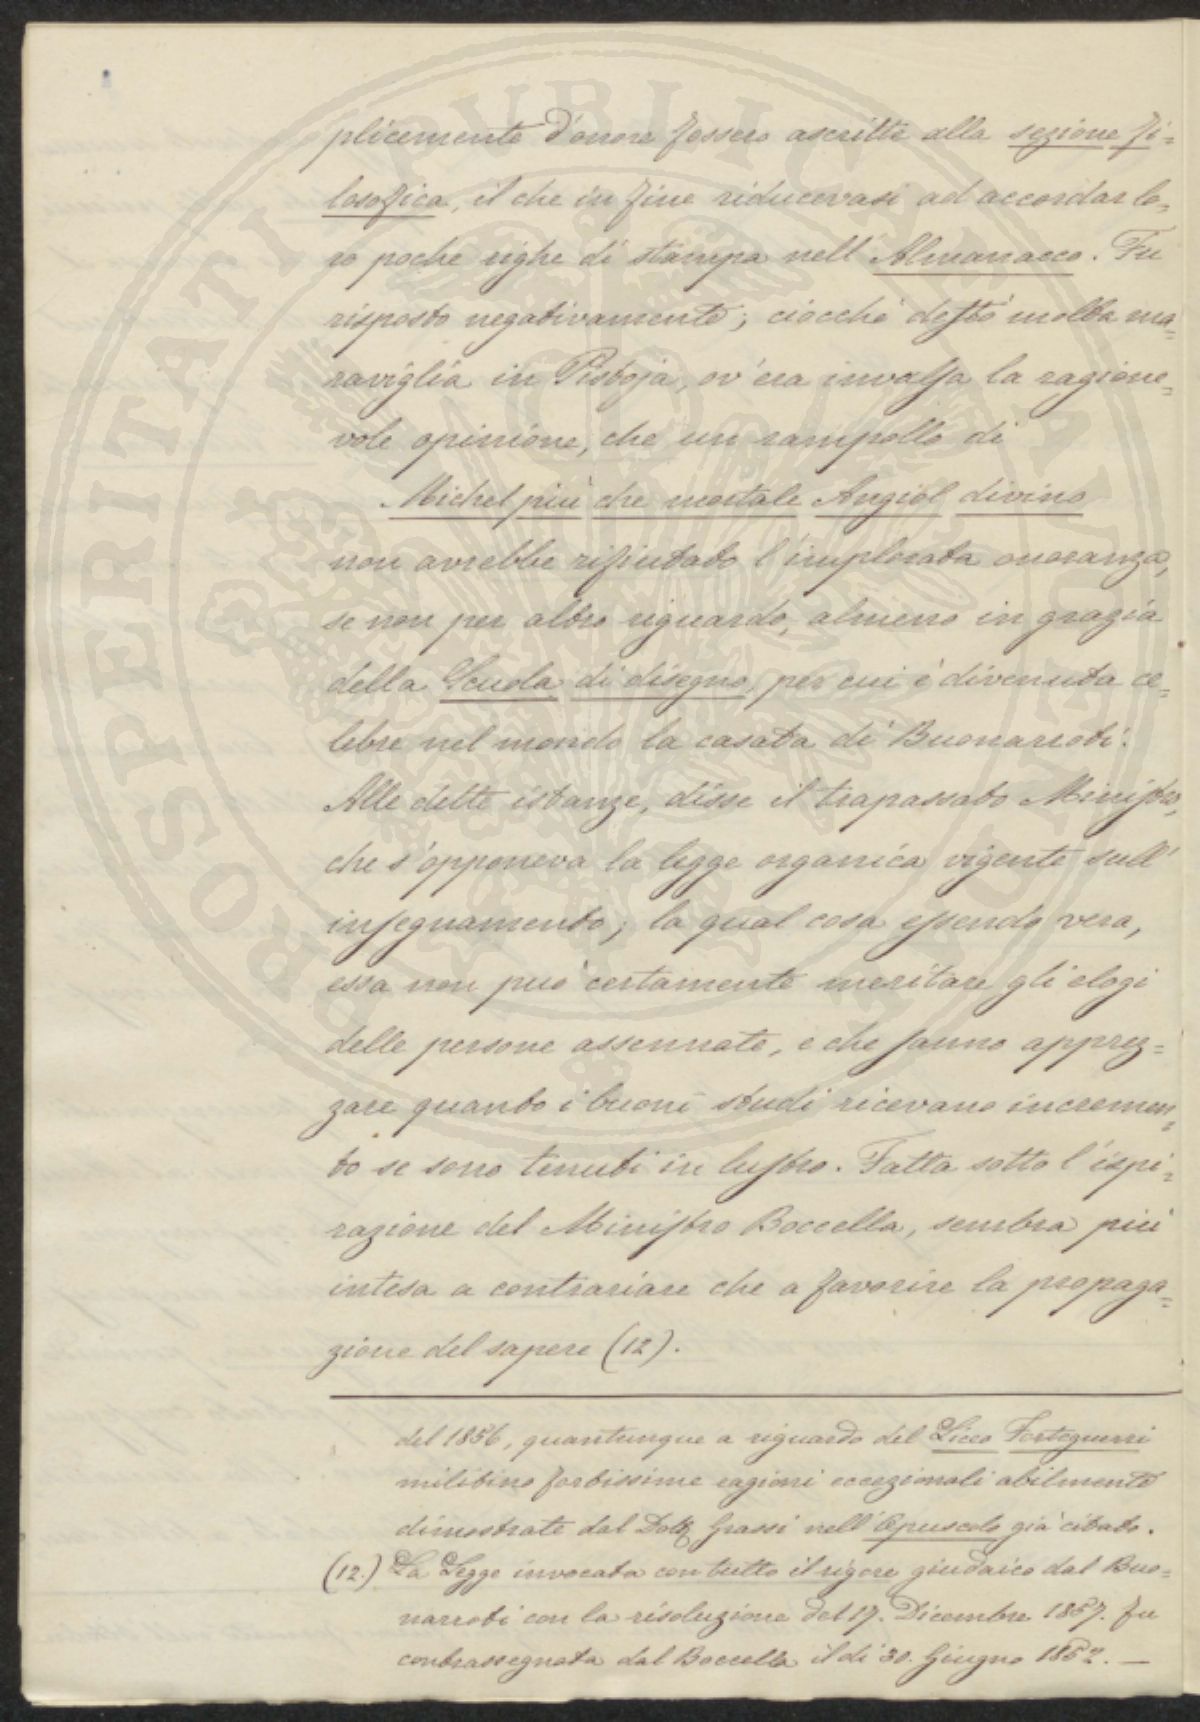 plicemente d'onore fossero ascritte alla sezione fi=
losofica, il che in fine riducevasi ad accordar lo=
ro poche righe di stampa nell'Almanacco. Fu
risposto negativamente; ciocchè destò molta ma=
raviglia in Pistoja, ov'era invalsa la ragione=
vole opinione, che un rampollo di
Michel più che mortale Angiol divino
non avrebbe rifiutato l'implorata onoranza,
se non per altro riguardo, almeno in grazia
della Scuola di disegno, per cui è divenuta ce=
lebre nel mondo la casata di Buonarroti.
Alle dette istanze, disse il trapassato Ministro,
che s'opponeva la legge organica vigente sull'
insegnamento; la qual cosa essendo vera,
essa non può certamente meritare gli elogi
delle persone assennate, e che sanno apprez=
zare quanto i buoni studi ricevano incremen=
to se sono tenuti in lustro. Fatta sotto l'ispi=
razione del Ministro Boccella, sembra più
intesa a contrariare che a favorire la propaga=
zione del sapere (12).
del 1856, quantunque a riguardo del Liceo Forteguerri
militino fortissime ragioni eccezionali abilmente
dimostrate dal Dott. Grassi nell'Opuscolo già citato.
(12.) La Legge invocata con tutto il rigore giudaico dal Buo=
narroti con la risoluzione del 17. Dicembre 1857. fu
contrassegnata dal Boccella il dì 30. Giugno 1852. —
PROSPERITATI PUBLICAE AUGENDAE